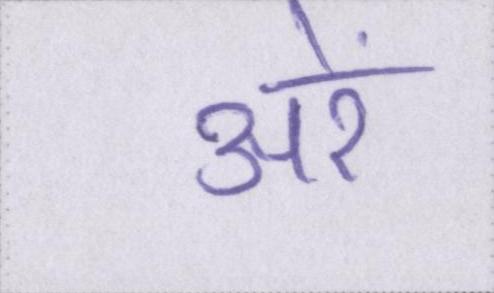 अरें